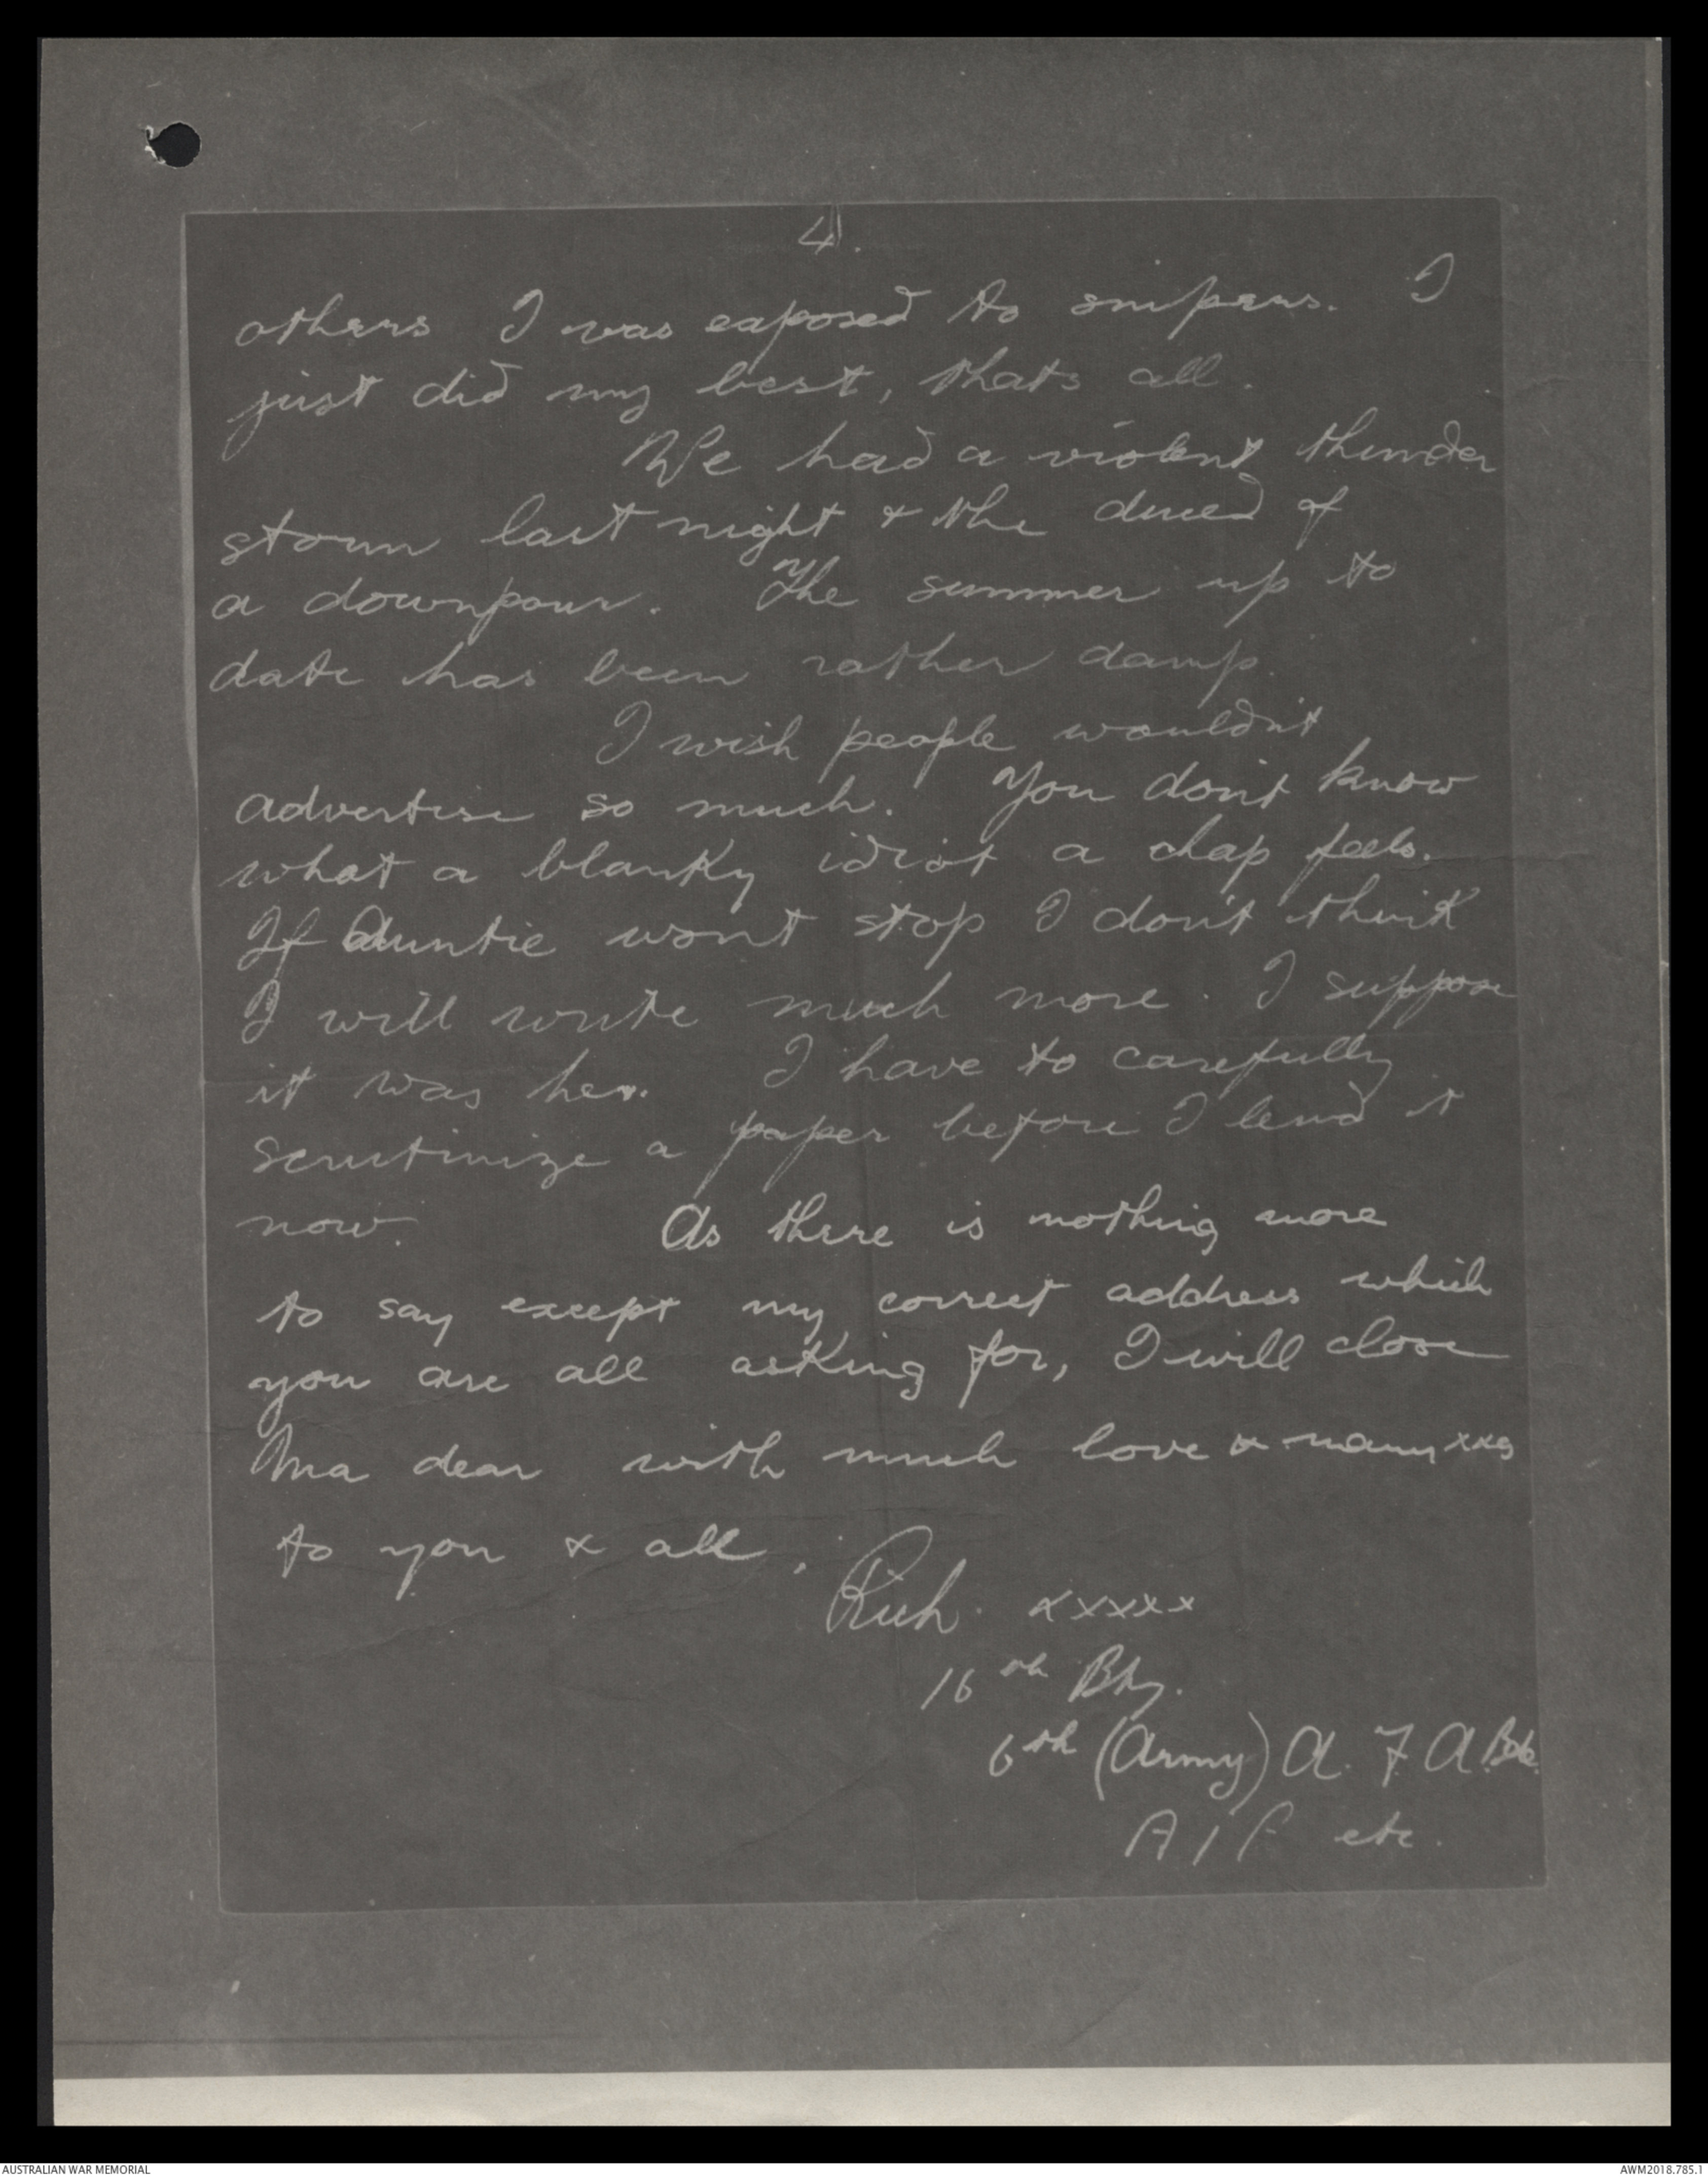 4.
others I was exposed to snipers. I
just did my best, thats all.
We had a violent thunder
storm last night & the duced of
a downpour. The summer up to
date has been rather damp.
I wish people wouldn't
advertise so much. You don't know
what a blanky idiot a chap feels.
If Auntie wont stop I don't think
I will write much more. I suppose
it was her. I have to carefully
scrutinize a paper before I lend it
now. As there is nothing more
to say except my correct address which
you are all asking for, I will close
Ma dear with much love & many xxs
to you & all.
Rich. xxxxx
16th Bty.
6th (Army) A. F. A. Bde.
A I F etc.
AUSTRALIAN WAR MEMORIAL
AWM2018.785.1